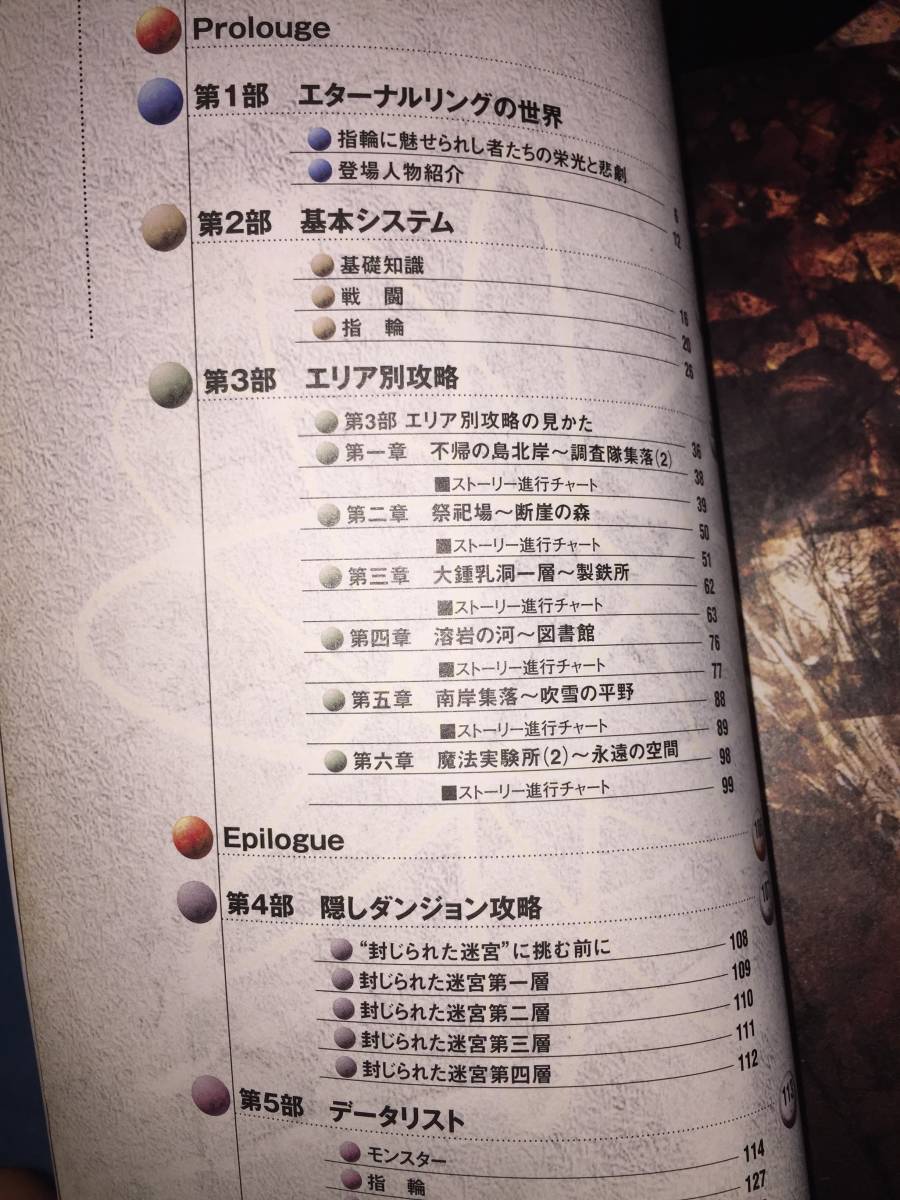 Prolouge
第1部 エターナルリングの世界
指輪に魅せられし者たちの栄光と悲劇 6
登場人物紹介 12
第2部 基本システム
基礎知識 16
戦 闘 20
指 輪 26
第3部 エリア別攻略
第3部 エリア別攻略の見かた 36
第一章 不帰の島北岸〜調査隊集落(2) 38
■ストーリー進行チャート 39
第二章 祭祀場〜断崖の森 50
■ストーリー進行チャート 51
第三章 大鍾乳洞一層〜製鉄所 62
■ストーリー進行チャート 63
第四章 溶岩の河〜図書館 76
■ストーリー進行チャート 77
第五章 南岸集落〜吹雪の平野 88
■ストーリー進行チャート 89
第六章 魔法実験所(2)〜永遠の空間 98
■ストーリー進行チャート 99
Epilogue
第4部 隠しダンジョン攻略
“封じられた迷宮”に挑む前に 108
封じられた迷宮第一層 109
封じられた迷宮第二層 110
封じられた迷宮第三層 111
封じられた迷宮第四層 112
第5部 データリスト 113
モンスター 114
指 輪 127